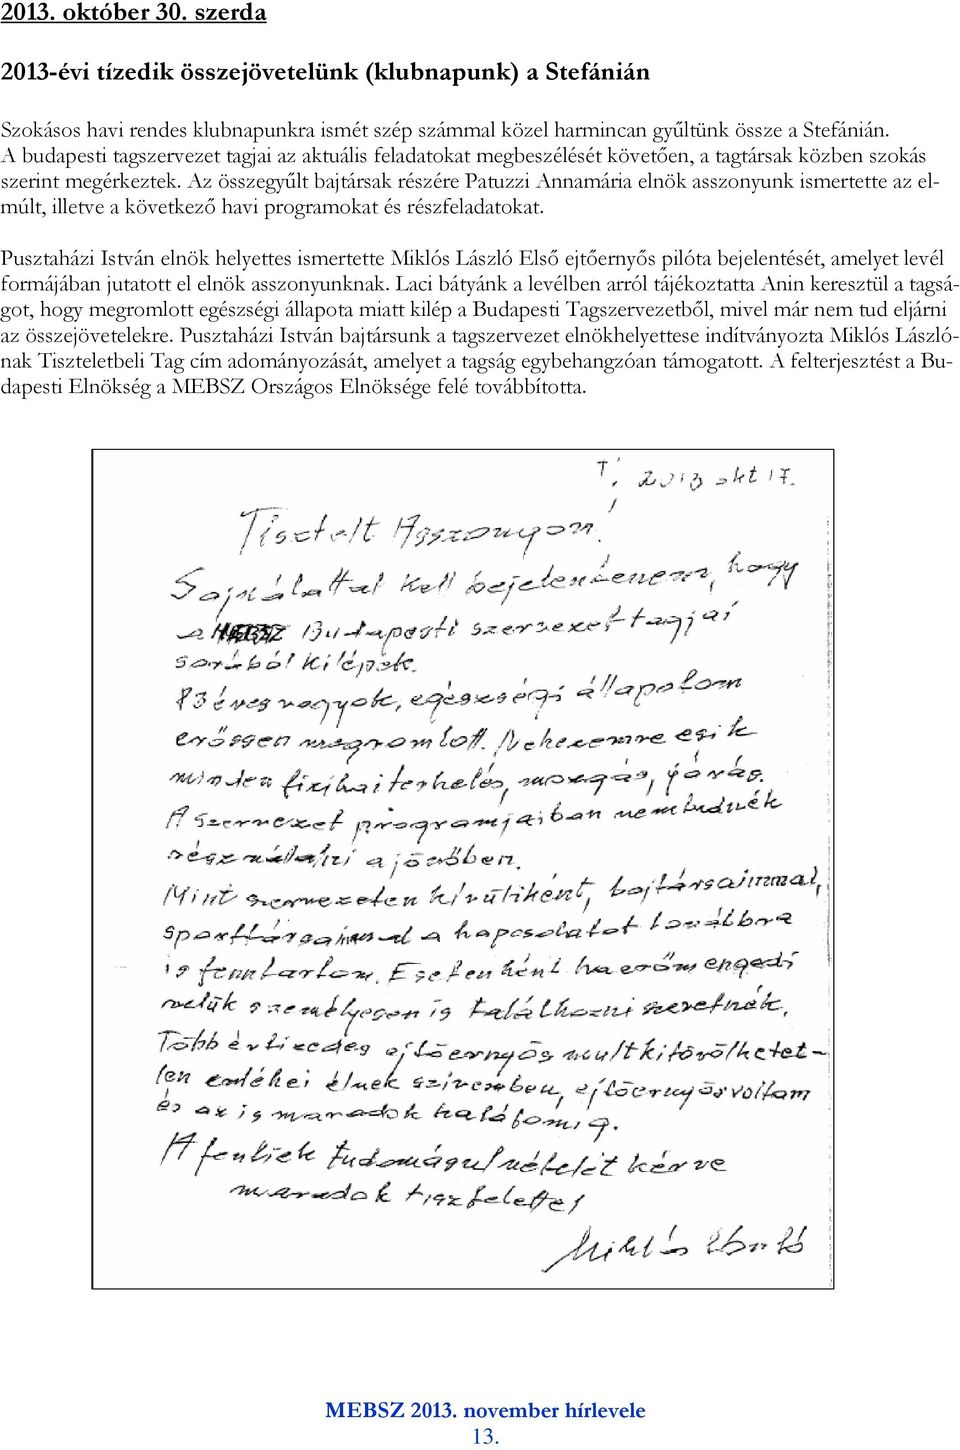 2013. október 30. szerda
2013-évi tízedik összejövetelünk (klubnapunk) a Stefánián
Szokásos havi rendes klubnapunkra ismét szép számmal közel harmincan gyűltünk össze a Stefánián.
A budapesti tagszervezet tagjai az aktuális feladatokat megbeszélését követően, a tagtársak közben szokás
szerint megérkeztek. Az összegyűlt bajtársak részére Patuzzi Annamária elnök asszonyunk ismertette az el-
múlt, illetve a következő havi programokat és részfeladatokat.
Pusztaházi István elnök helyettes ismertette Miklós László Első ejtőernyős pilóta bejelentését, amelyet levél
formájában jutatott el elnök asszonyunknak. Laci bátyánk a levélben arról tájékoztatta Anin keresztül a tagsá-
got, hogy megromlott egészségi állapota miatt kilép a Budapesti Tagszervezetből, mivel már nem tud eljárni
az összejövetelekre. Pusztaházi István bajtársunk a tagszervezet elnökhelyettese indítványozta Miklós László-
nak Tiszteletbeli Tag cím adományozását, amelyet a tagság egybehangzóan támogatott. A felterjesztést a Bu-
dapesti Elnökség a MEBSZ Országos Elnöksége felé továbbította.
2013 okt 17.
Tisztelt Asszonyom!
Sajnálattal kell bejelentenem, hogy
a Budapesti szervezet tagjai
sorából kilépek.
83 éves vagyok, egészségi állapotom
erőssen megromlott. Nehezemre esik
minden fizikai terhelés, mozgás, járás.
A szervezet programjaiban nem tudnék
részt vállalni a jövőben.
Mint szervezeten kívüliként, bajtársaimmal,
sporttársaimmal a kapcsolatot továbbra
is fenntartom. Esetenként ha erőm engedi
velük személyesen is találkozni szeretnék.
Több évtizedes ejtőernyős mult kitörölhetet-
len emlékei élnek szivemben, ejtőernyős voltam
és az is maradok halálomig.
A fentiek tudomásul vételét kérve
maradok tisztelettel
Miklós László
MEBSZ 2013. november hírlevele
13.